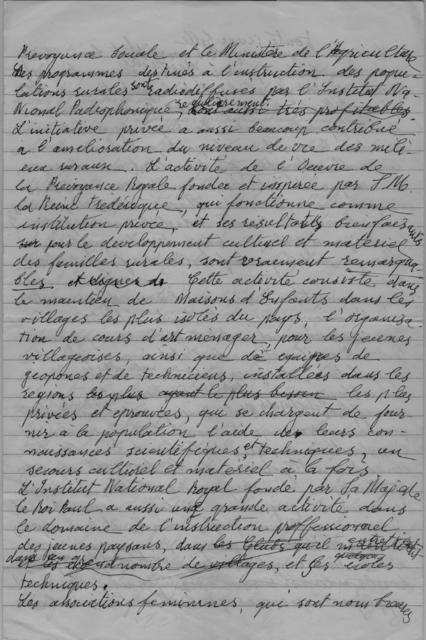 Prevoyance Sociale et le Ministère de l'Agriculture
Des programmes destinés à l'instruction des popu-
lations rurales sont radiodiffusés par l'Institut Na-
tional Radiophonique, régulièrement. sont aussi très profitables.
L'initiative privée a aussi beaucoup contribué
a l'amelioration du niveau de vie des mili-
eux ruraux. L'activité de l'Oeuvre de
la Prevoyance Royale fondée et inspirée par S.M.
la Reine Frederique, qui fonctionne comme
institution privée, et ses résultats bienfaisants
sur pour le developpement culturel et materiel
des familles rurales, sont vraiment remarqua-
bles et dignes de Cette activité consiste dans
le maintien de Maisons d'Enfants dans les
villages les plus isolés du pays, l'organisa-
tion de cours d'art ménager, pour les jeunes
villageoises, ainsi que de equipes de
geopones et de techniciens, installées dans les
regions les plus ayant le plus besoin les plus
privées et eprouvées, qui se chargent de four-
nir à la population l'aide de leurs con-
naissances scientifiques et techniques, un
secours culturel et matériel à la fois
L'Institut National Royal fondé par Sa Majesté
le Roi Paul a aussi une grande activité dans
le domaine de l'instruction proffessionel
des jeunes paysans, dans les qu'il entretient
dans les grand nombre de villages, et les écoles
techniques.
Les associations feminines, qui sont nombreuses